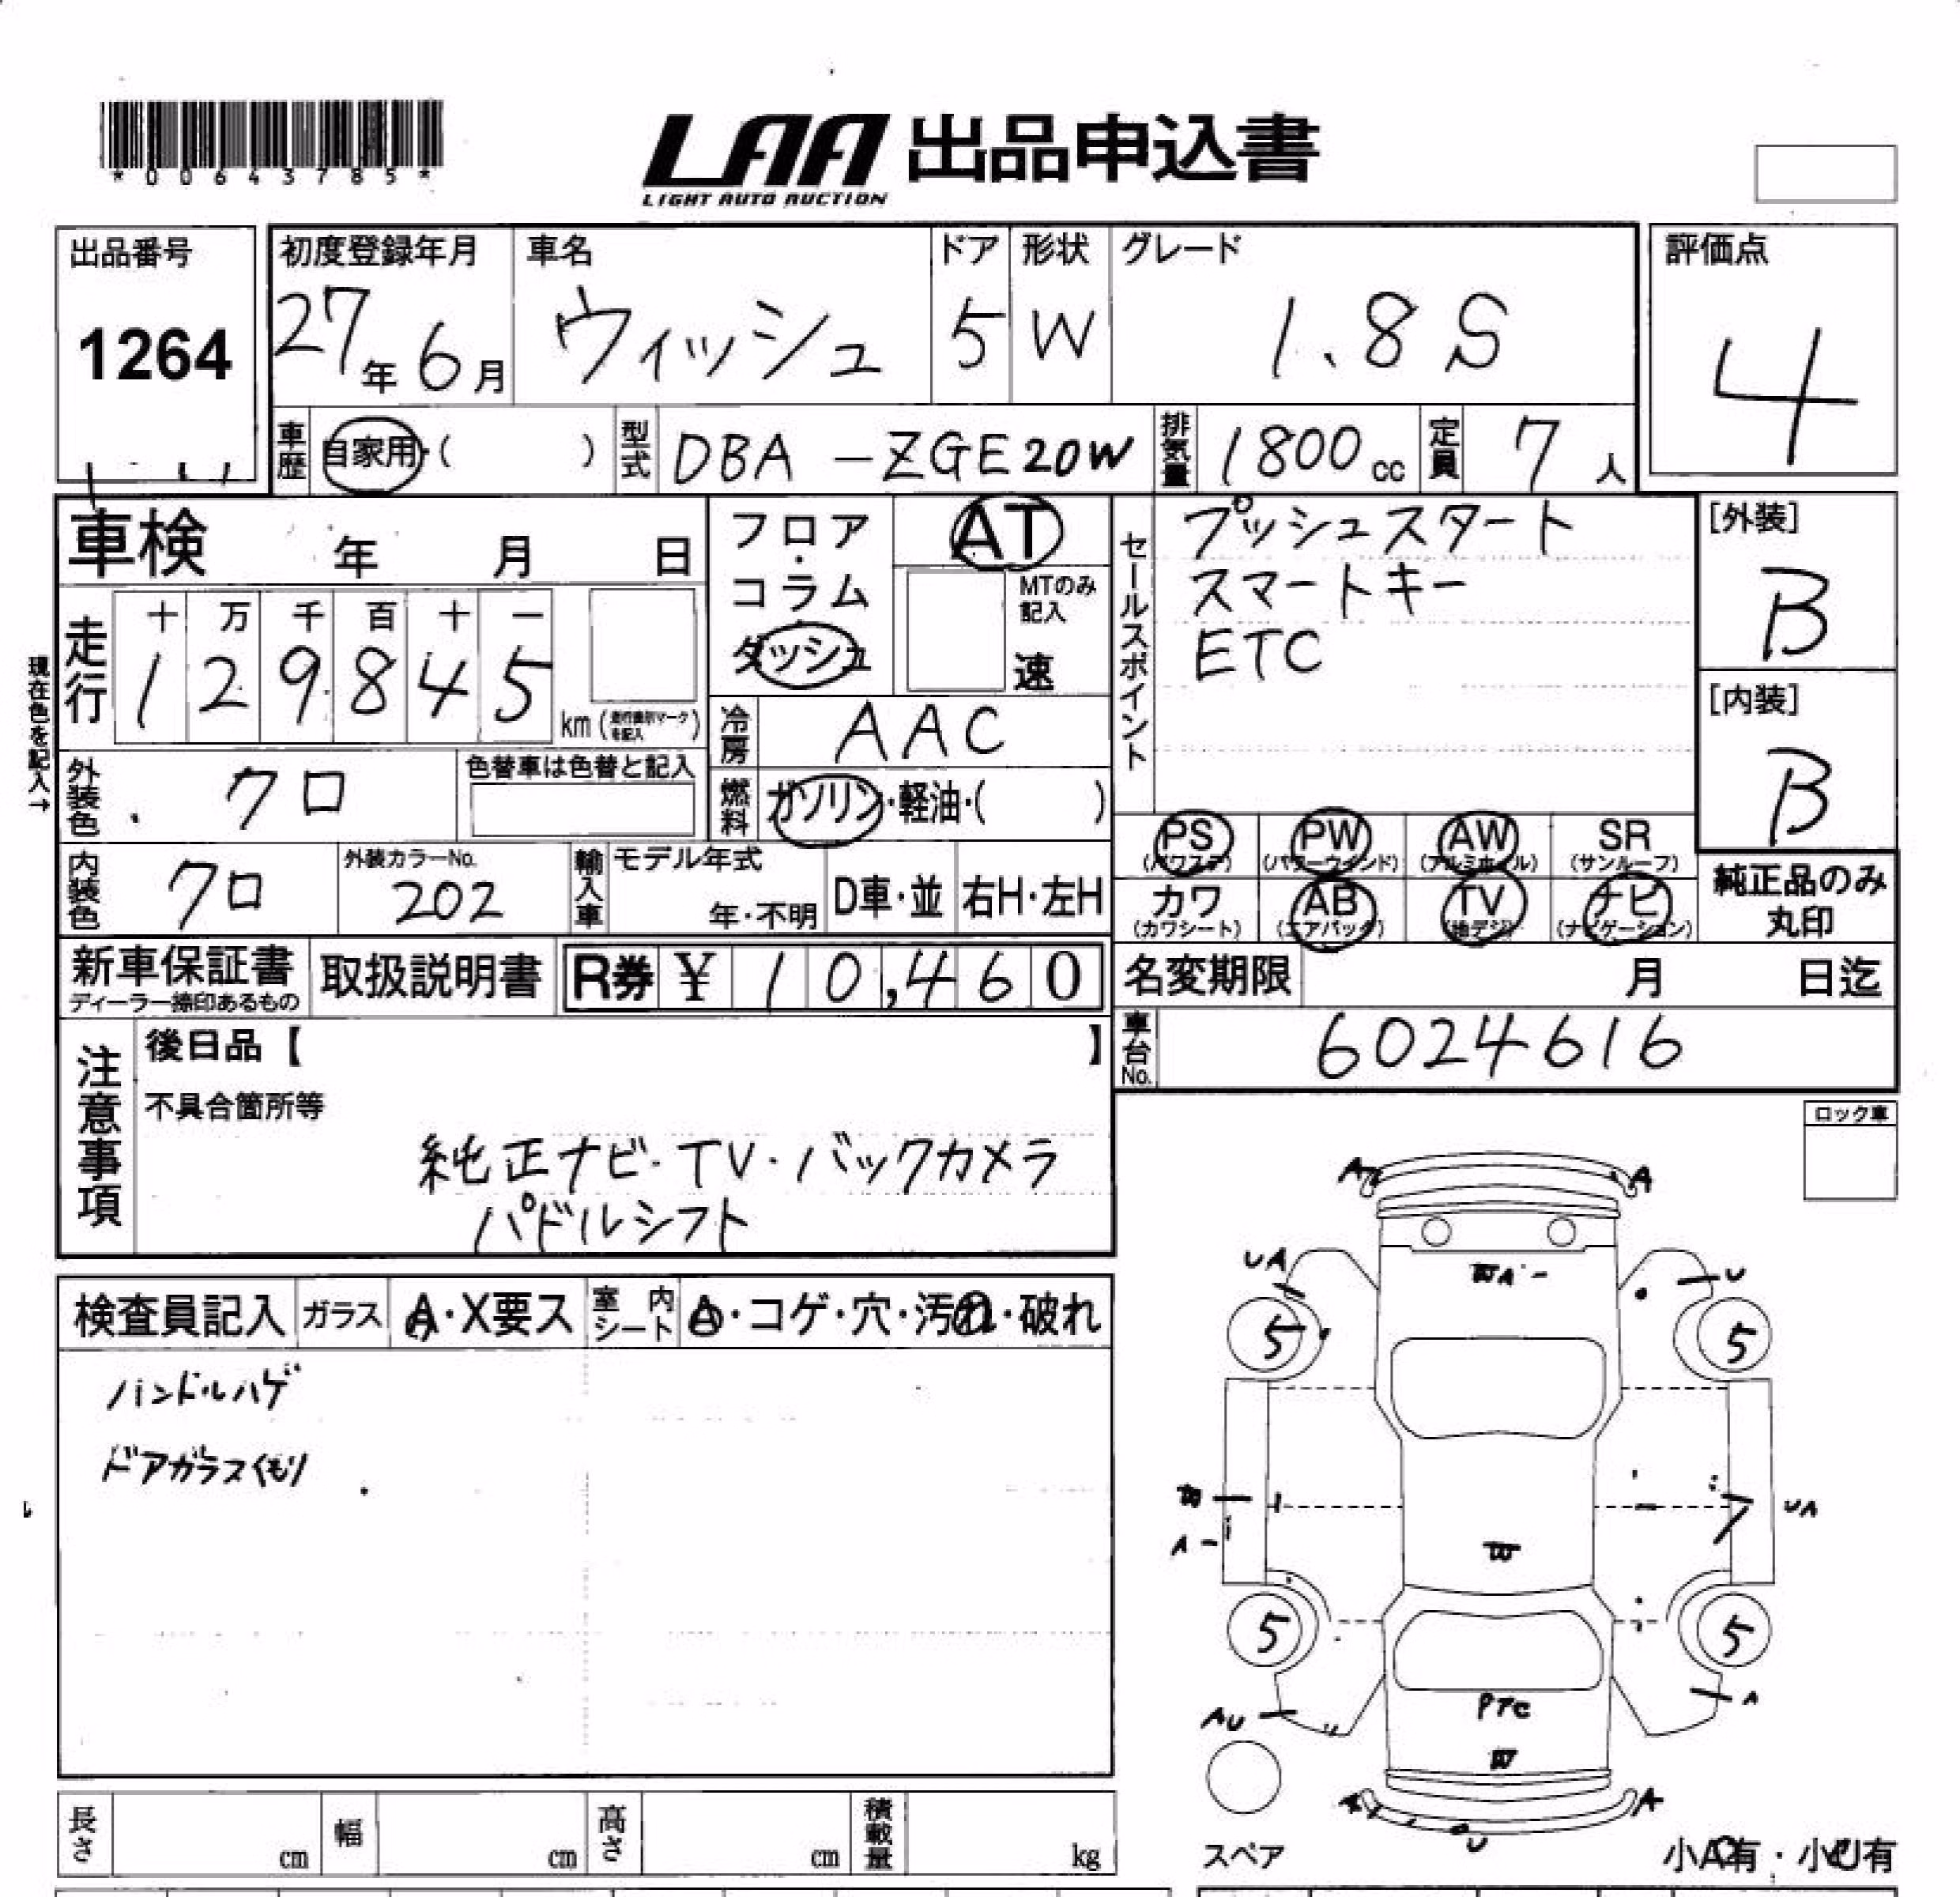 *00643785*
LAA 出品申込書
LIGHT AUTO AUCTION
出品番号
1264
初度登録年月
27年6月
車名
ウィッシュ
ドア
5
形状
W
グレード
1.8S
評価点
4
車歴
自家用・( )
型式
DBA-ZGE20W
排気量
1800cc
定員
7人
車検 年 月 日
フロア・コラム・ダッシュ
AT
MTのみ記入
速
セールスポイント
プッシュスタート
スマートキー
ETC
[外装]
B
[内装]
B
現在色を記入→
走行
十 万 千 百 十 一
1 2 9 8 4 5
km
冷房
AAC
燃料
ガソリン・軽油・( )
外装色
クロ
色替車は色替と記入
内装色
クロ
外装カラーNo.
202
輸入車
モデル年式
年・不明
D車・並
右H・左H
PS
(パワステ)
PW
(パワーウインド)
AW
(アルミホイル)
SR
(サンルーフ)
カワ
(カワシート)
AB
(エアバック)
TV
(地デジ)
ナビ
(ナビゲーション)
純正品のみ
丸印
新車保証書
ディーラー捺印あるもの
取扱説明書
R券 ¥ 10,460
名変期限 月 日迄
車台No.
6024616
注意事項
後日品【 】
不具合箇所等
純正ナビ・TV・バックカメラ
パドルシフト
ロック車
検査員記入
ガラス
A・X要ス
室内シート
A・コゲ・穴・汚れ・破れ
ハンドルハゲ
ドアガラスくもり
A
A
UA
U
5
5
A
UA
W
5
5
PTC
AU
A
W
A
A
U
スペア
小A有・小U有
長さ
cm
幅
cm
高さ
cm
積載量
kg